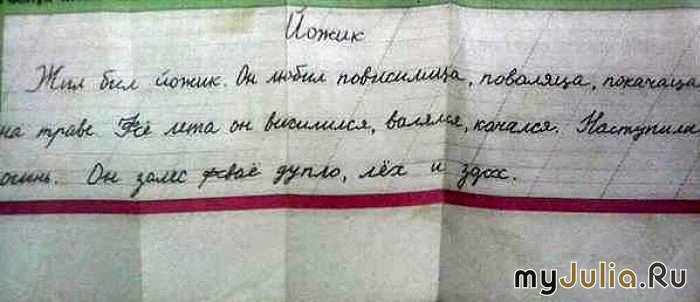 Йожик
Жил бил йожик. Он любил повисилицца, поволяцца, покачацца
на траве. Фсё лета он висилился, валялся, качался. Наступила
осинь. Он залес фсваё дупло, лёх и здох.
myJulia.Ru